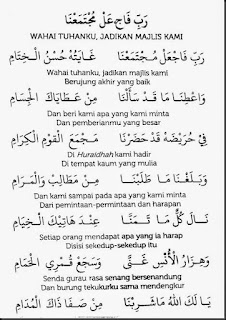 رَبِّ فَاجْعَلْ مُجْتَمَعْنَا
WAHAI TUHANKU, JADIKAN MAJLIS KAMI
رَبِّ فَاجْعَلْ مُجْتَمَعْنَا غَايَتُهُ حُسْنُ الْخِتَامِ
Wahai tuhanku, jadikan majlis kami
Berujung akhir yang baik
وَاعْطِنَا مَا قَدْ سَأَلْنَا مِنْ عَطَايَاكَ الْجِسَامِ
Dan beri kami apa yang kami minta
Dan pemberianmu yang besar
فِيْ حُرَيْضَةْ قَدْ حَضَرْنَا مَجْمَعَ الْقَوْمِ الْكِرَامِ
Di Huraidhah kami hadir
Di tempat kaum yang mulia
وَبَلَغْنَا مَا طَلَبْنَا مِنْ مَطَالِبْ وَالْمَرَامِ
Dan kami sampai pada apa yang kami minta
Dari permintaan-permintaan dan harapan
نَالَ كُلٌّ مَا تَمَنَّى عِنْدَ هَاتِيْكَ الْخِيَامِ
Setiap orang mendapat apa yang ia harap
Disisi sekedup-sekedup itu
وَهِزَارُ الْأُنْسِ غَنَّى وَسَجَعْ قُمْرِي الْحَمَامِ
Senda gurau rasa senang bersenandung
Dan burung tekukurku sama mendengkur
يَا لَكَ اللهُ مَاشَرِبْنَا مِنْ صَفَا ذَاكَ الْمُدَامِ